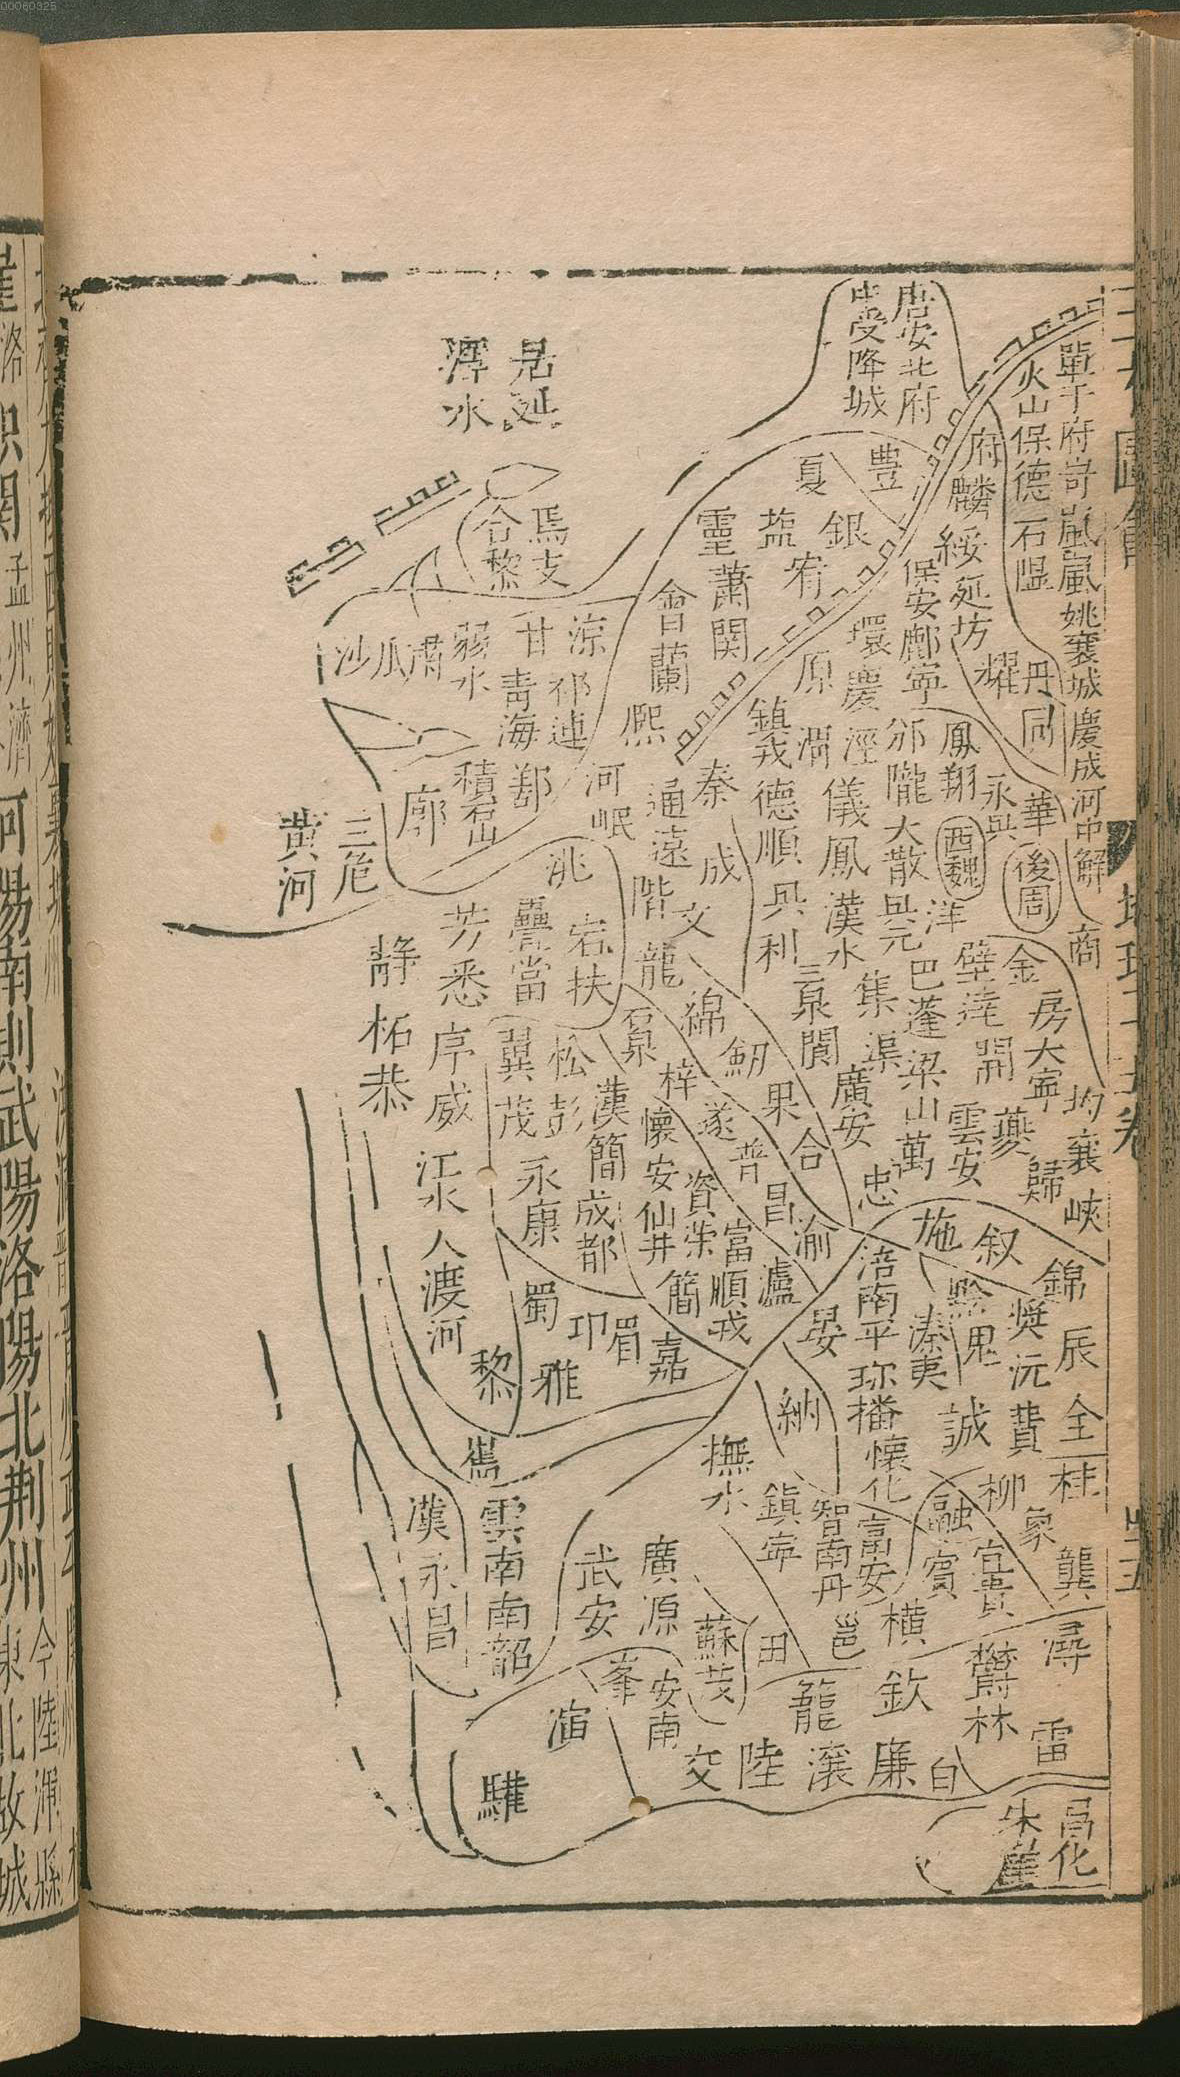 00060325
唐安北府
中受降城
單于府岢嵐嵐姚襄城慶成河中解
火山保德石隰
居延
澤水
府麟綏延坊
豊
夏
銀
鹽
宥
靈
蕭関
會
蘭
熙
保安鄜寧
環慶
原
丹同
耀
華
永興
後周
西魏
鳳翔
邠隴大散興元
洋
涇
儀鳳漢水
鎮戎德順興利
秦
成
通遠階
文
龍
河
岷
洮
焉支
合黎
涼
甘
祁連
青海
弱水
肅
瓜
沙
鄯
積石山
廓
三危
黄河
宕扶
疊當
芳悉
静柘恭
序威
翼茂
松彭
江水
永康
漢簡成都
石泉
綿
梓
劒
果
合
遂
普
昌
渝
懷安仙井
資榮
富順戎
瀘
簡
三泉閬
集渠
廣安
巴蓬梁山萬
忠
壁達開
金
房大寧
商
均襄
夔
雲安
歸
峽
施
叙
錦
辰
全
桂
涪南平珍播懷化
溱夷
黔思
奬沅費
誠
晏
納
人渡河
蜀
卭
蜀
嘉
黎
雅
雟
雲南南詔
漢永昌
撫水
鎮寧
智南丹
富安
融賓
柳
象
宜貴
龔
潯
雷
鬱林
橫
邕
欽
田
廣源
武安
蘇茂
安南
峯
龍
交
陸
瀼
廉
白
驩
昌化
朱崖
河陽南則武陽洛陽北荆州
今陸渾縣
東北故城
孟州濟